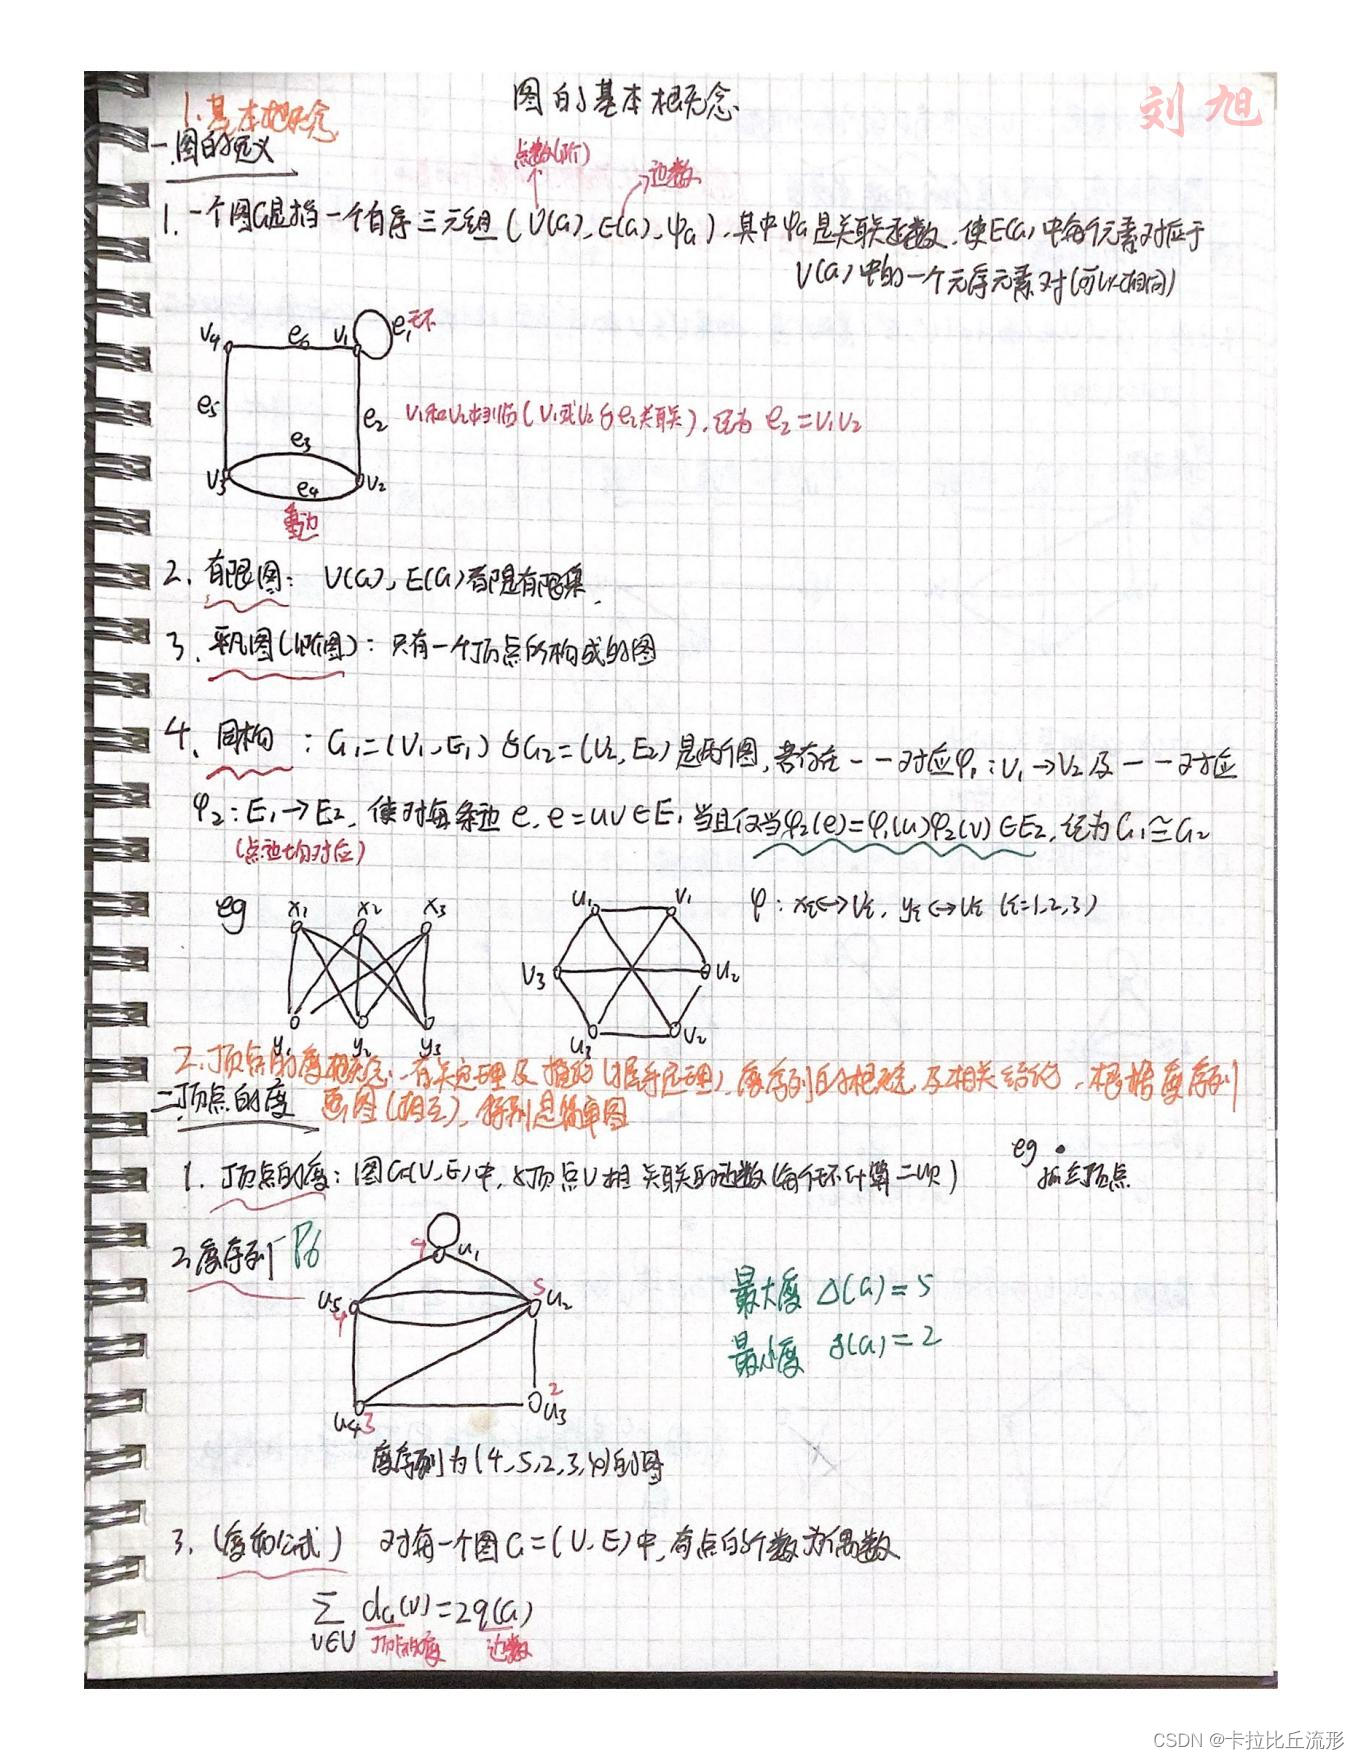 图的基本概念
刘旭
1.基本概念
一.图的定义
点数(阶)
边数
1. 一个图G是指一个有序三元组(V(G),E(G),φG),其中φG是关联函数,使E(G)中每个元素对应于
V(G)中的一个无序元素对(可以相同)
v4 e6 v1 e1 环
e5 e2 v1和v2相邻(v1或v2与e2关联),记为 e2=v1v2
e3
v3 e4 v2
重边
2. 有限图: V(G),E(G)都是有限集.
3. 平凡图(1阶图): 只有一个顶点所构成的图
4. 同构: G1=(V1,E1)与G2=(V2,E2)是两个图,若存在一一对应φ1:V1→V2及一一对应
φ2:E1→E2,使对每条边e,e=uv∈E1当且仅当φ2(e)=φ1(u)φ2(v)∈E2,记为G1≅G2
(点边均对应)
eg x1 x2 x3 u1 v1 φ: xi↔vi, yi↔ui (i=1,2,3)
v3 u2
y1 y2 y3 u3 v2
2.顶点的度概念,有关定理及推论(握手定理),度序列的概念及相关结论,根据度序列
画图(相互),特别是简单图
二.顶点的度
1. 顶点的度: 图G=(V,E)中,与顶点v相关联的边数(每个环计算二次)
eg
孤立顶点
2.度序列 P6
4 u1
u5 4 5 u2
最大度 Δ(G)=5
最小度 δ(G)=2
u4 3 2 u3
度序列为(4,5,2,3,4)的图
3. (度和公式) 对每一个图G=(V,E)中,奇点的个数为偶数
∑ dG(v)=2q(G)
v∈V 顶点的度 边数
CSDN @卡拉比丘流形